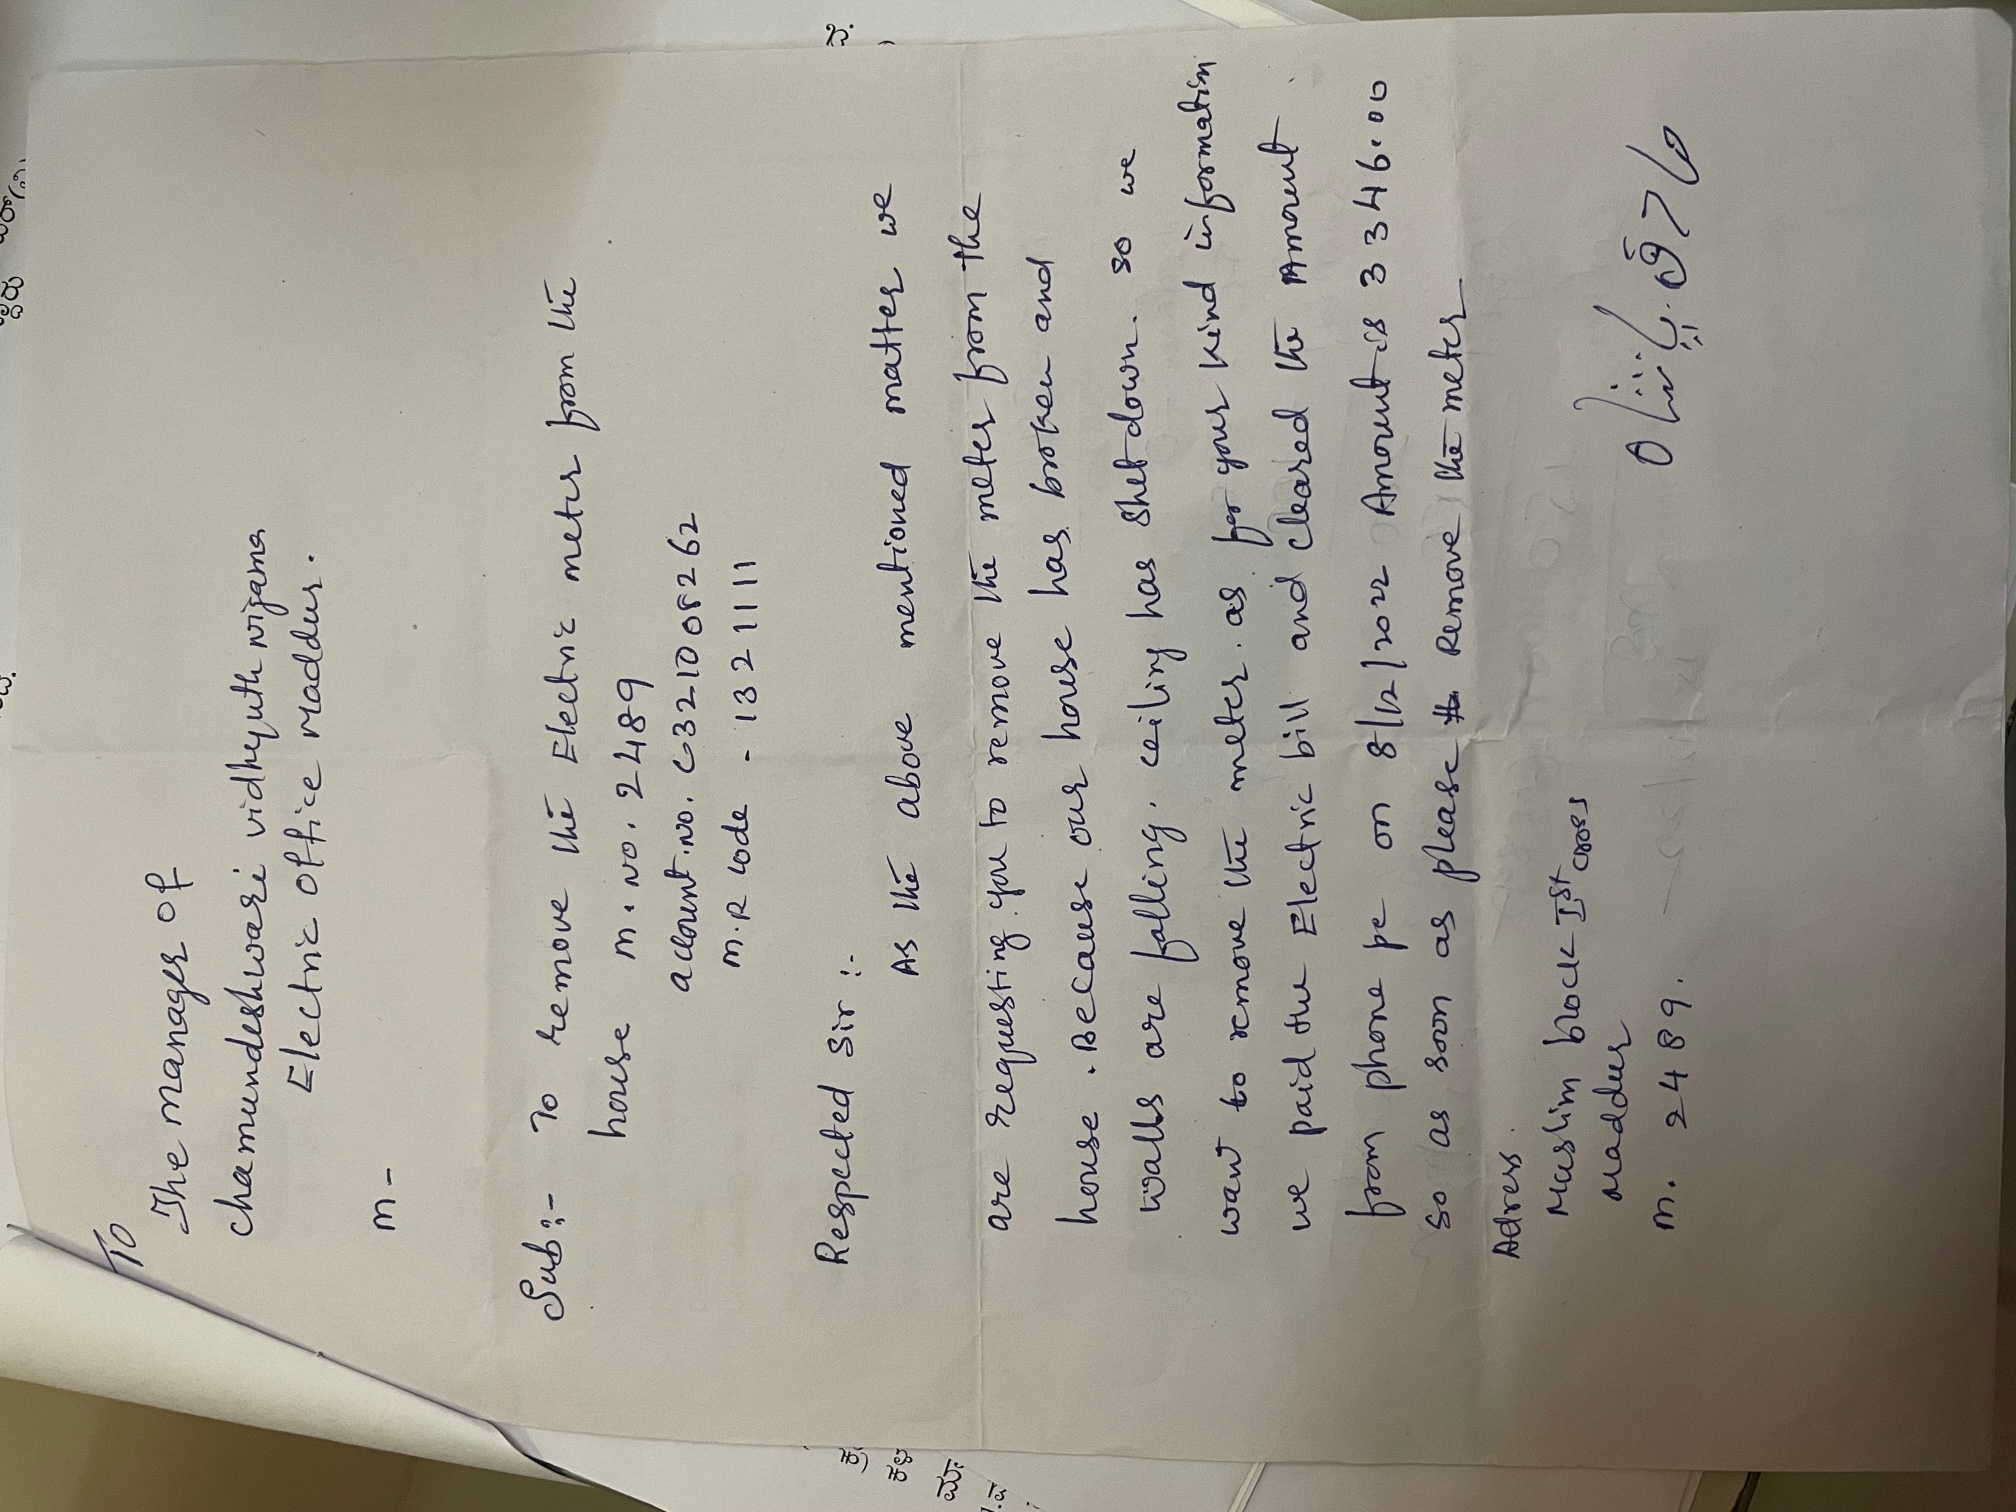 To
The manager of
chamundeshwari vidhyuth nigama
Electric office maddur.
m-
Sub:- To remove the Electric meter from the
house m. no. 2489
account.no. C3210 08262
m.R code - 1321111
Respected Sir :-
As the above mentioned matter we
are requesting you to remove the meter from the
house. Because our house has broken and
walls are falling. ceiling has shet down. so we
want to remove the meter. as for your kind information
we paid the Electric bill and cleared the Amount.
from phone pe on 8/12/2022 Amount is 3346.00
so as soon as please Remove the meter
Adress.
Muslim block Ist cross
maddur
m. 2489.